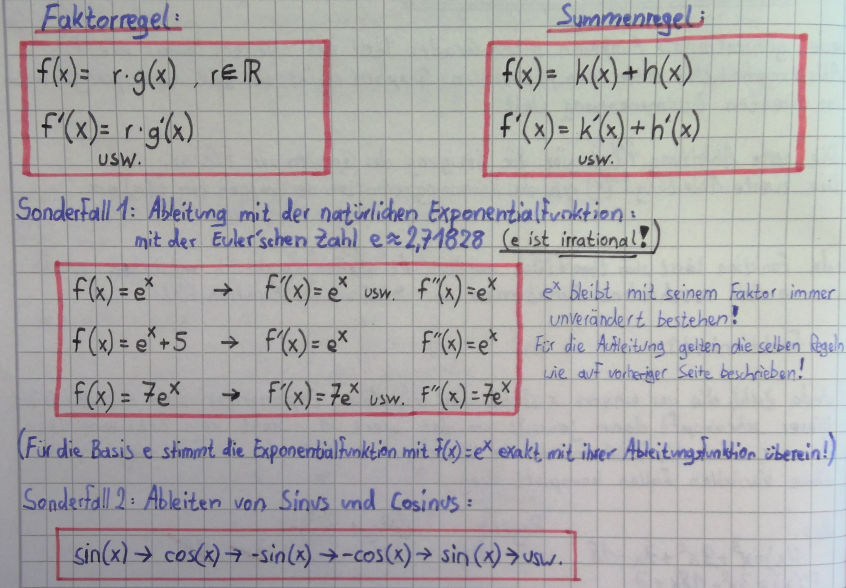 Faktorregel:
f(x) = r·g(x) , r∈ℝ
f'(x) = r·g'(x)
usw.
Summenregel:
f(x) = k(x)+h(x)
f'(x) = k'(x)+h'(x)
usw.
Sonderfall 1: Ableitung mit der natürlichen Exponentialfunktion:
mit der Euler'schen Zahl e≈2,71828 (e ist irrational!)
f(x) = eˣ → f'(x) = eˣ usw. f''(x) = eˣ
f(x) = eˣ+5 → f'(x) = eˣ f''(x) = eˣ
f(x) = 7eˣ → f'(x) = 7eˣ usw. f''(x) = 7eˣ
eˣ bleibt mit seinem Faktor immer
unverändert bestehen!
Für die Aufleitung gelten die selben Regeln
wie auf vorheriger Seite beschrieben!
(Für die Basis e stimmt die Exponentialfunktion mit f(x)=eˣ exakt mit ihrer Ableitungsfunktion überein!)
Sonderfall 2: Ableiten von Sinus und Cosinus:
sin(x) → cos(x) → -sin(x) → -cos(x) → sin(x) → usw.